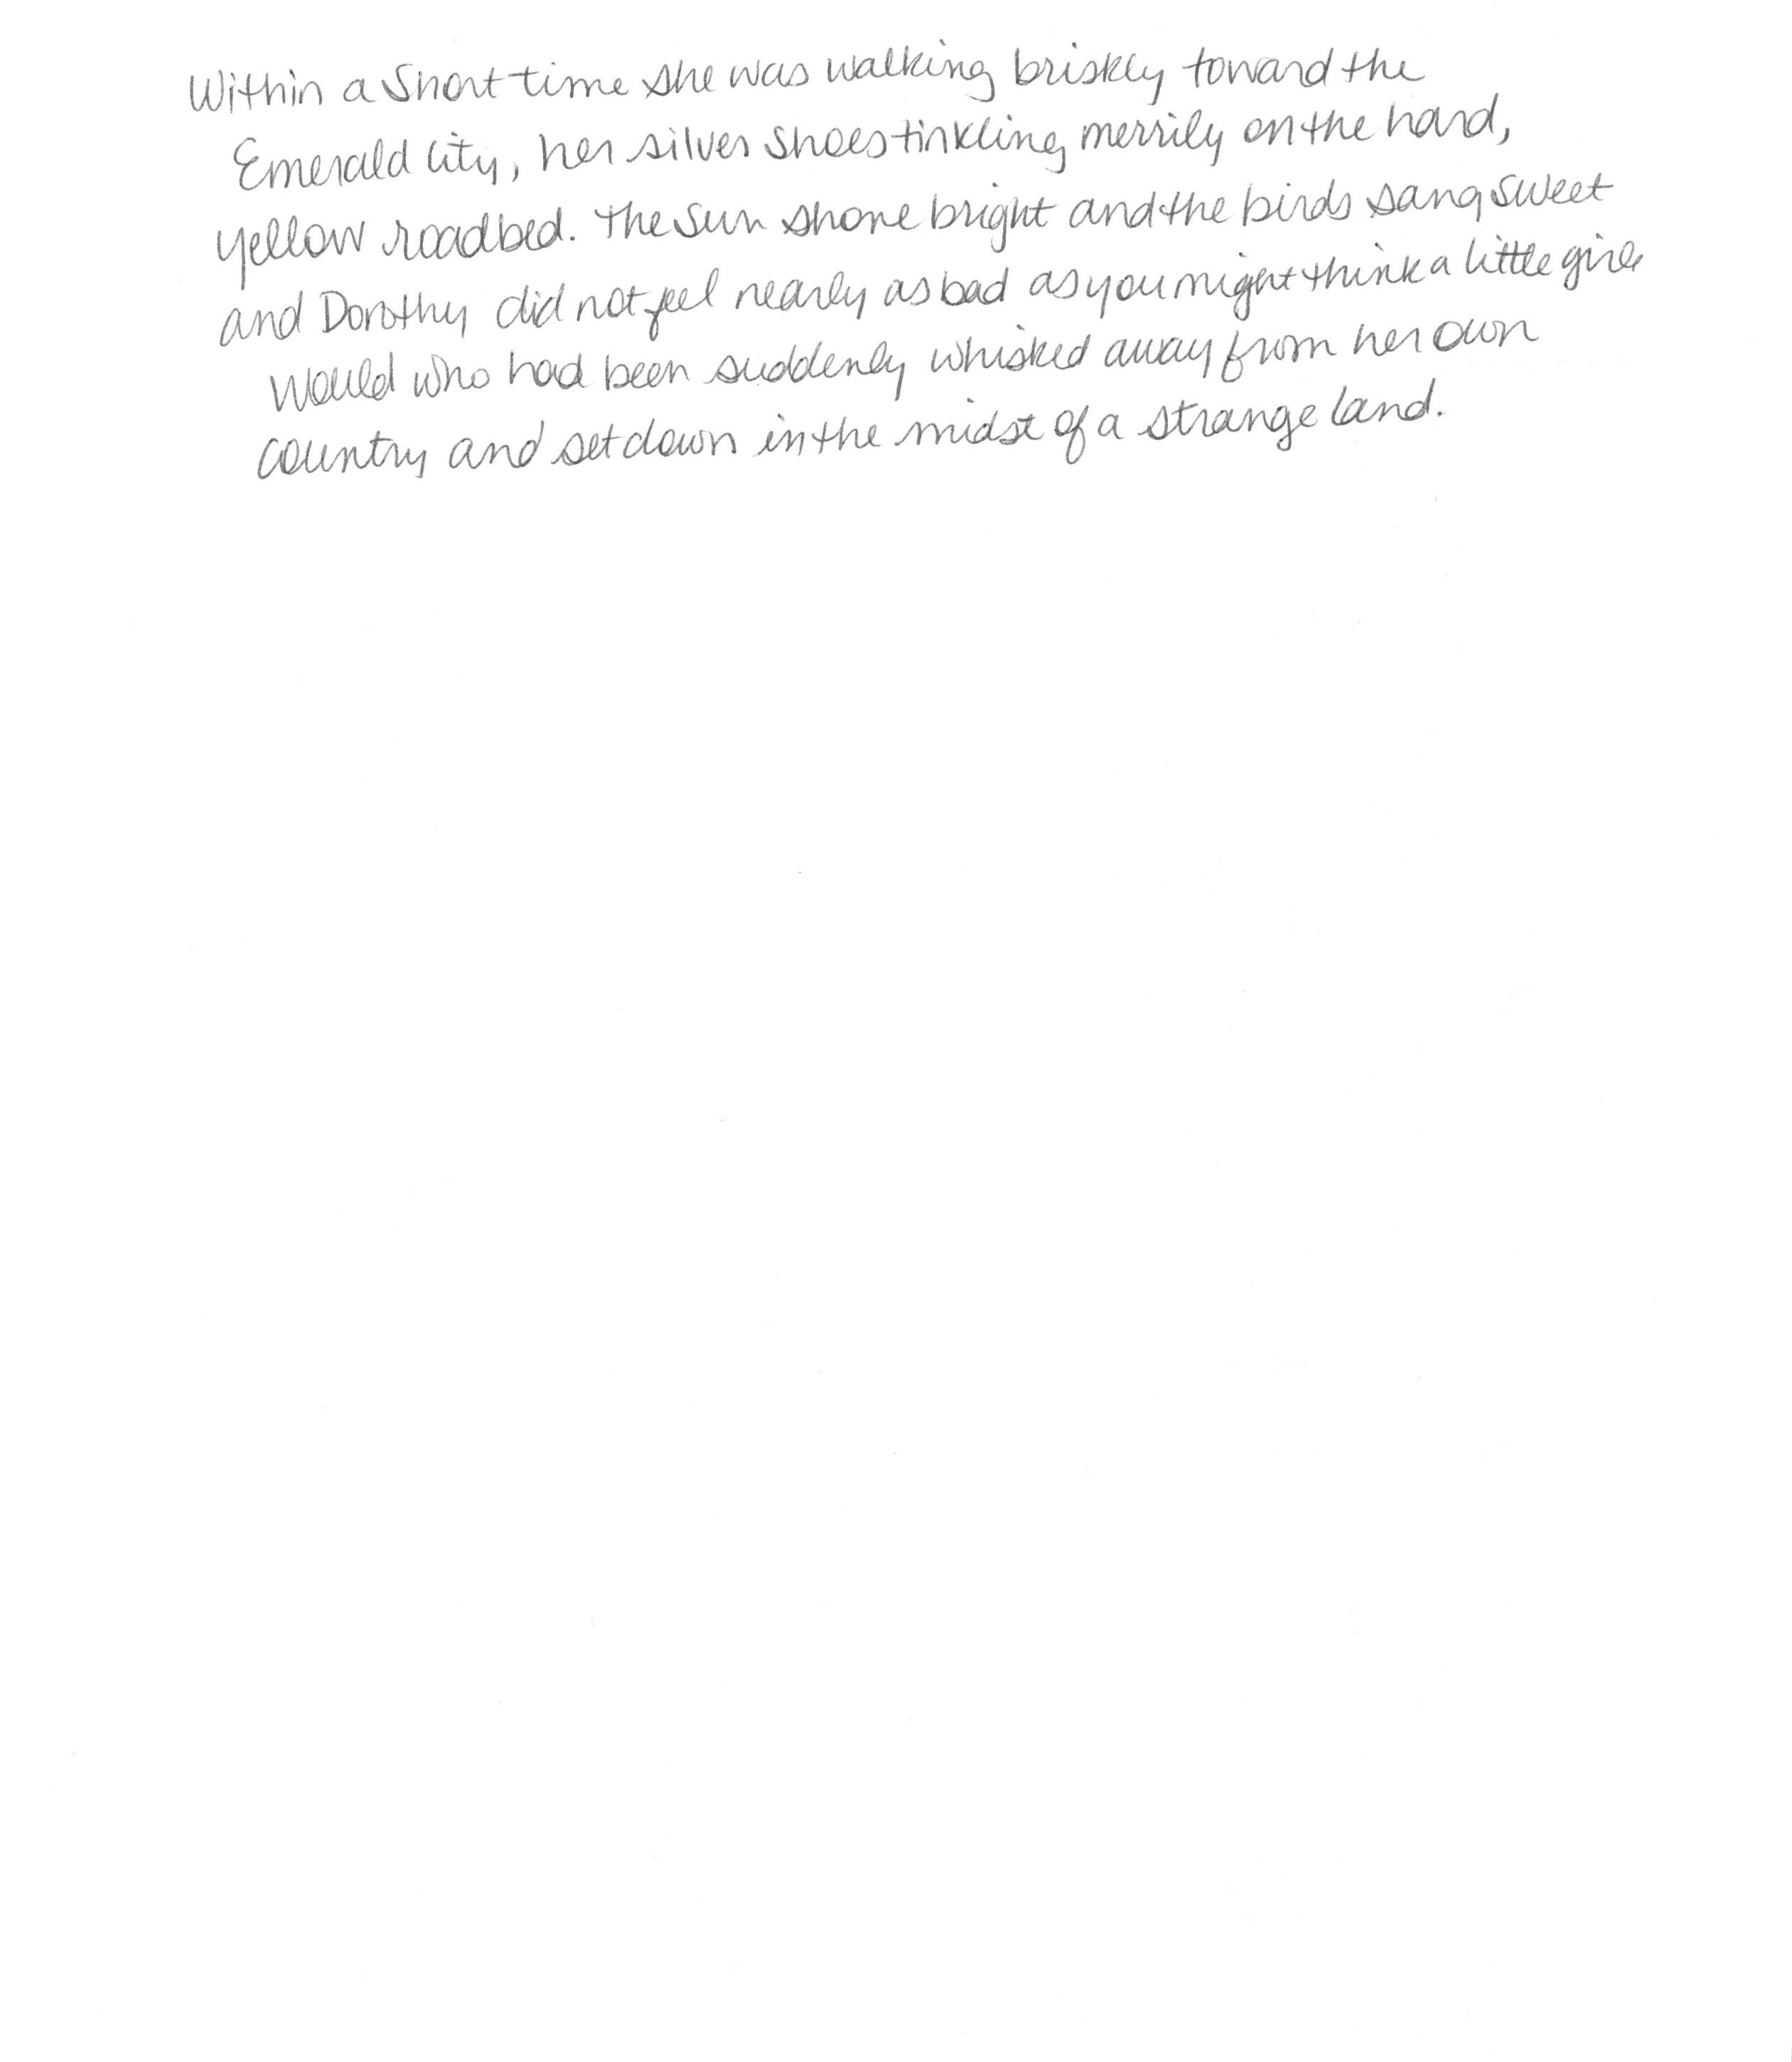 Within a Short time she was walking briskly toward the
Emerald City, her silver shoes tinkling merrily on the hard,
yellow roadbed. The sun shone bright and the birds sang sweet
and Dorothy did not feel nearly as bad as you might think a little girl
would who had been suddenly whisked away from her own
country and set down in the midst of a strange land.